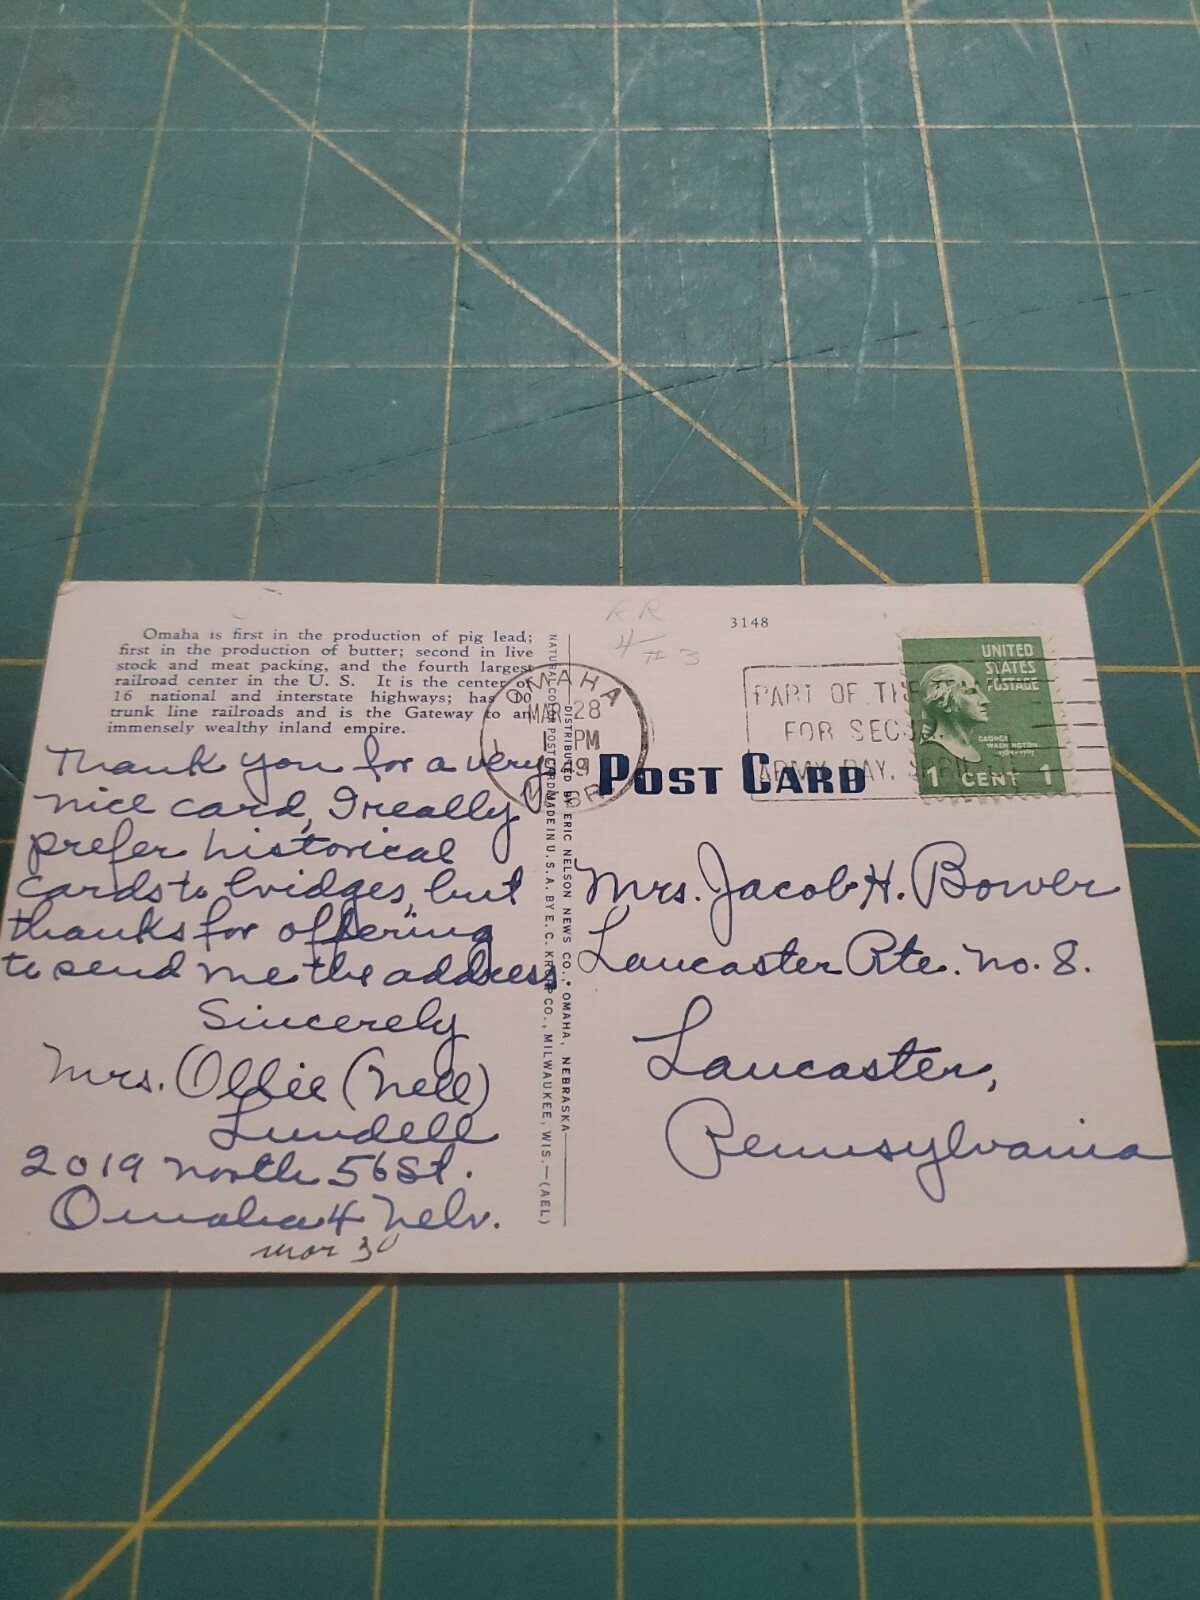 Omaha is first in the production of pig lead;
first in the production of butter; second in live
stock and meat packing, and the fourth largest
railroad center in the U. S. It is the center of
16 national and interstate highways; has 10
trunk line railroads and is the Gateway to an
immensely wealthy inland empire.
Thank you for a very
nice card, I really
prefer historical
cards to bridges, but
thanks for offering
to send me the address
Sincerely
Mrs. Ollie (Nell)
Lundell
2019 North 56 St.
Omaha 4 Nebr.
mar 30
NATURAL COLOR POST CARD MADE IN U. S. A. BY E. C. KROPP CO., MILWAUKEE, WIS.—(AEL)
DISTRIBUTED BY ERIC NELSON NEWS CO., OMAHA, NEBRASKA
RR
4 #3
3148
OMAHA
MAR 28
PM
1949
NEBR
PART OF THE
FOR SECU
ARMY DAY,
UNITED
STATES
POSTAGE
GEORGE
WASHINGTON
1 CENT 1
POST CARD
Mrs. Jacob H. Bower
Lancaster Rte. No. 8.
Lancaster,
Pennsylvania